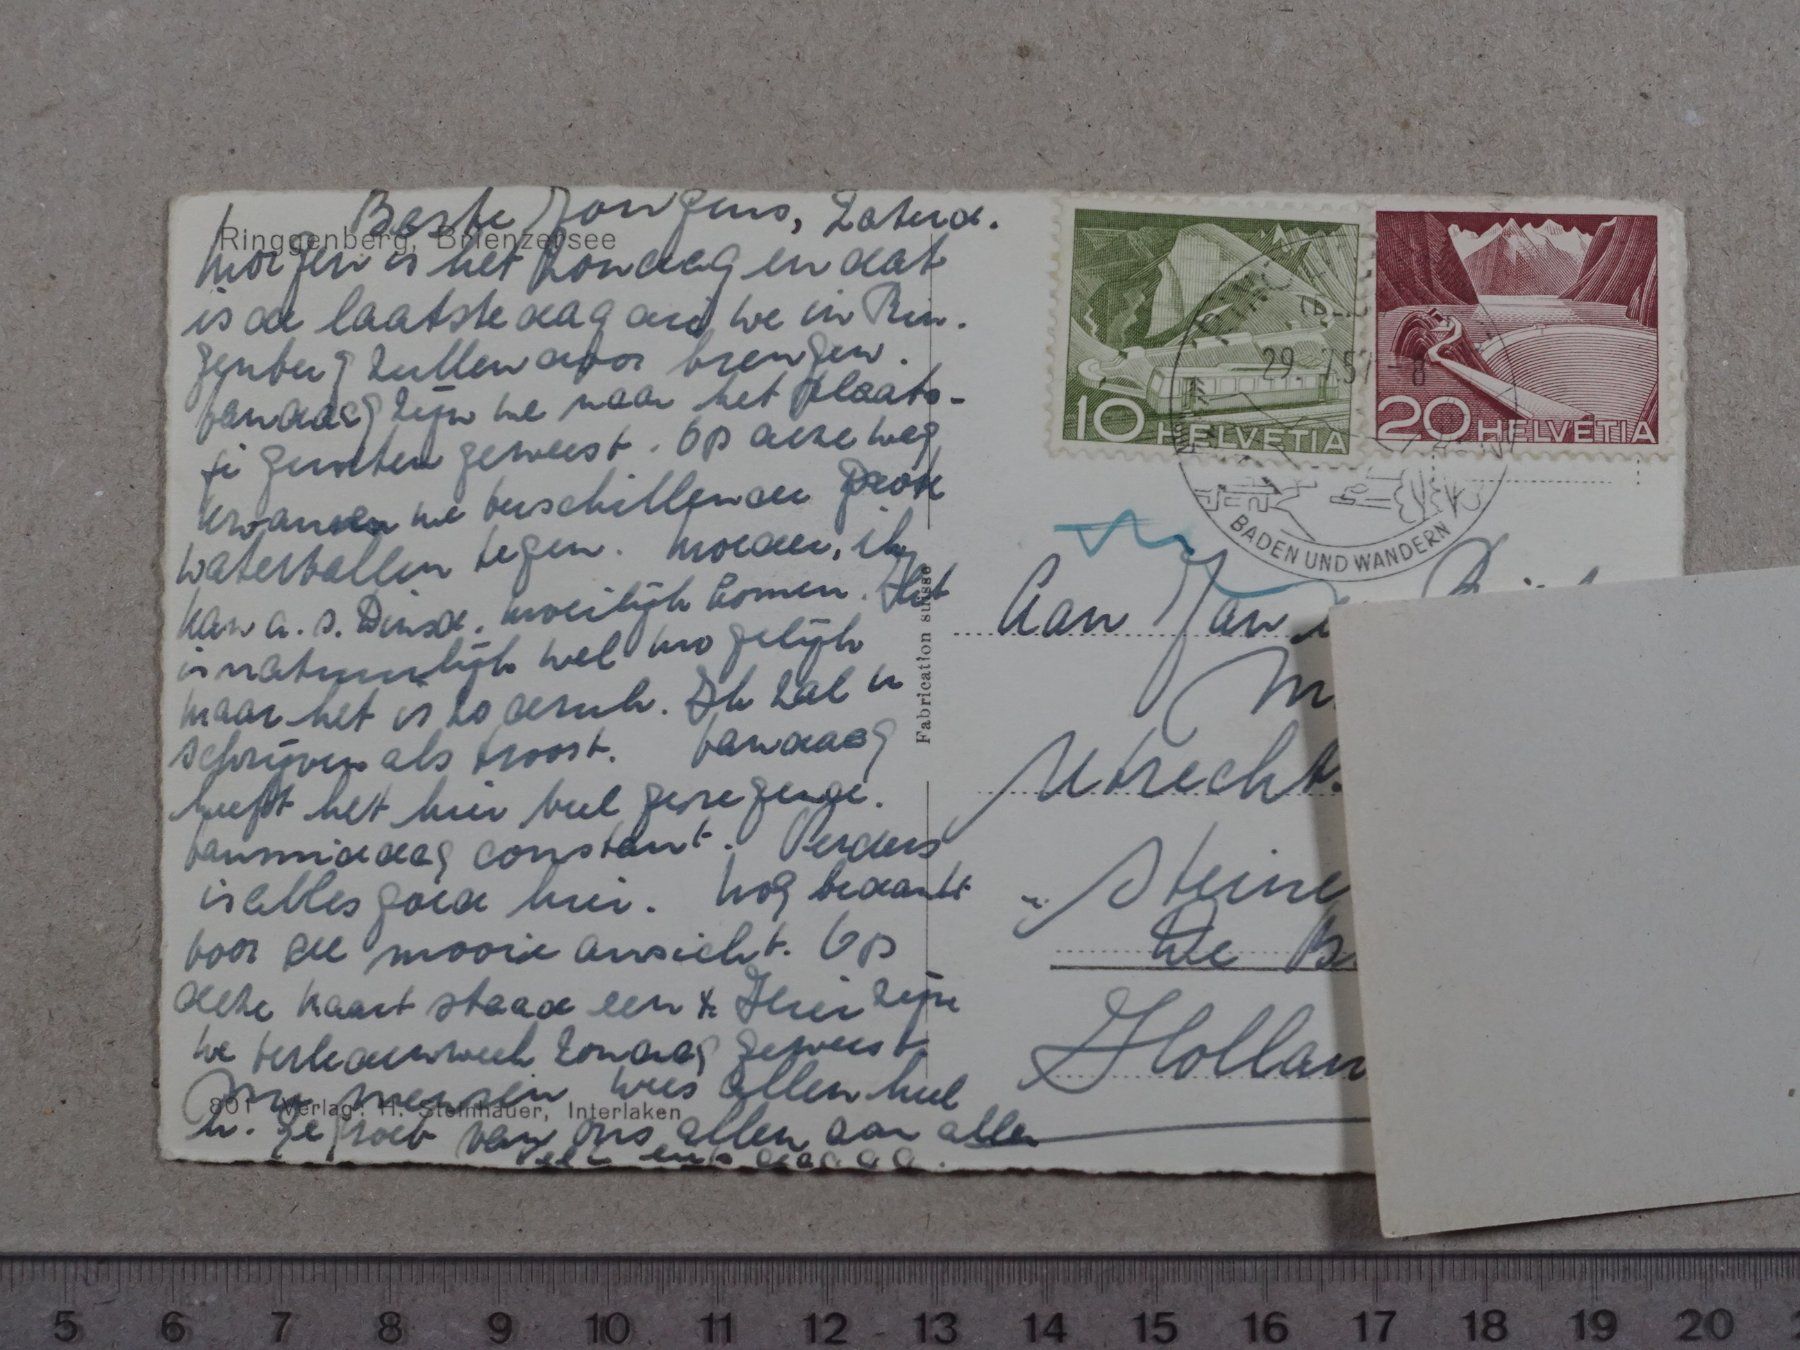 Beste Jongens, Zaterd.
Ringgenberg, Brienzersee
Morgen is het Zondag en dat
is de laatste dag die we in Rin.
genberg zullen door brengen.
Vandaag zijn we naar het plaats-
je geweest. Op deze weg
kwamen we verschillende grote
watervallen tegen. Moeder, ik
kan a.s. Dinsd. moeilijk komen. Het
is natuurlijk wel mogelijk
maar het is zo druk. Ik zal u
schrijven als troost. Vandaag
heeft het hier veel geregend.
Vanmiddag constant. Verders
is alles goed hier. Nog bedankt
voor de mooie ansicht. Op
deze kaart staad een x Hier zijn
we verleden week Zondag geweest
wees allen heel
801 Verlag: H. Steinhauer, Interlaken
h. gegroet van ons allen aan allen
Fabrication suisse
10 HELVETIA
20 HELVETIA
29. 7.57 - 8
BADEN UND WANDERN
Aan Jan
Utrecht.
Steine
Holland
5 6 7 8 9 10 11 12 13 14 15 16 17 18 19 20